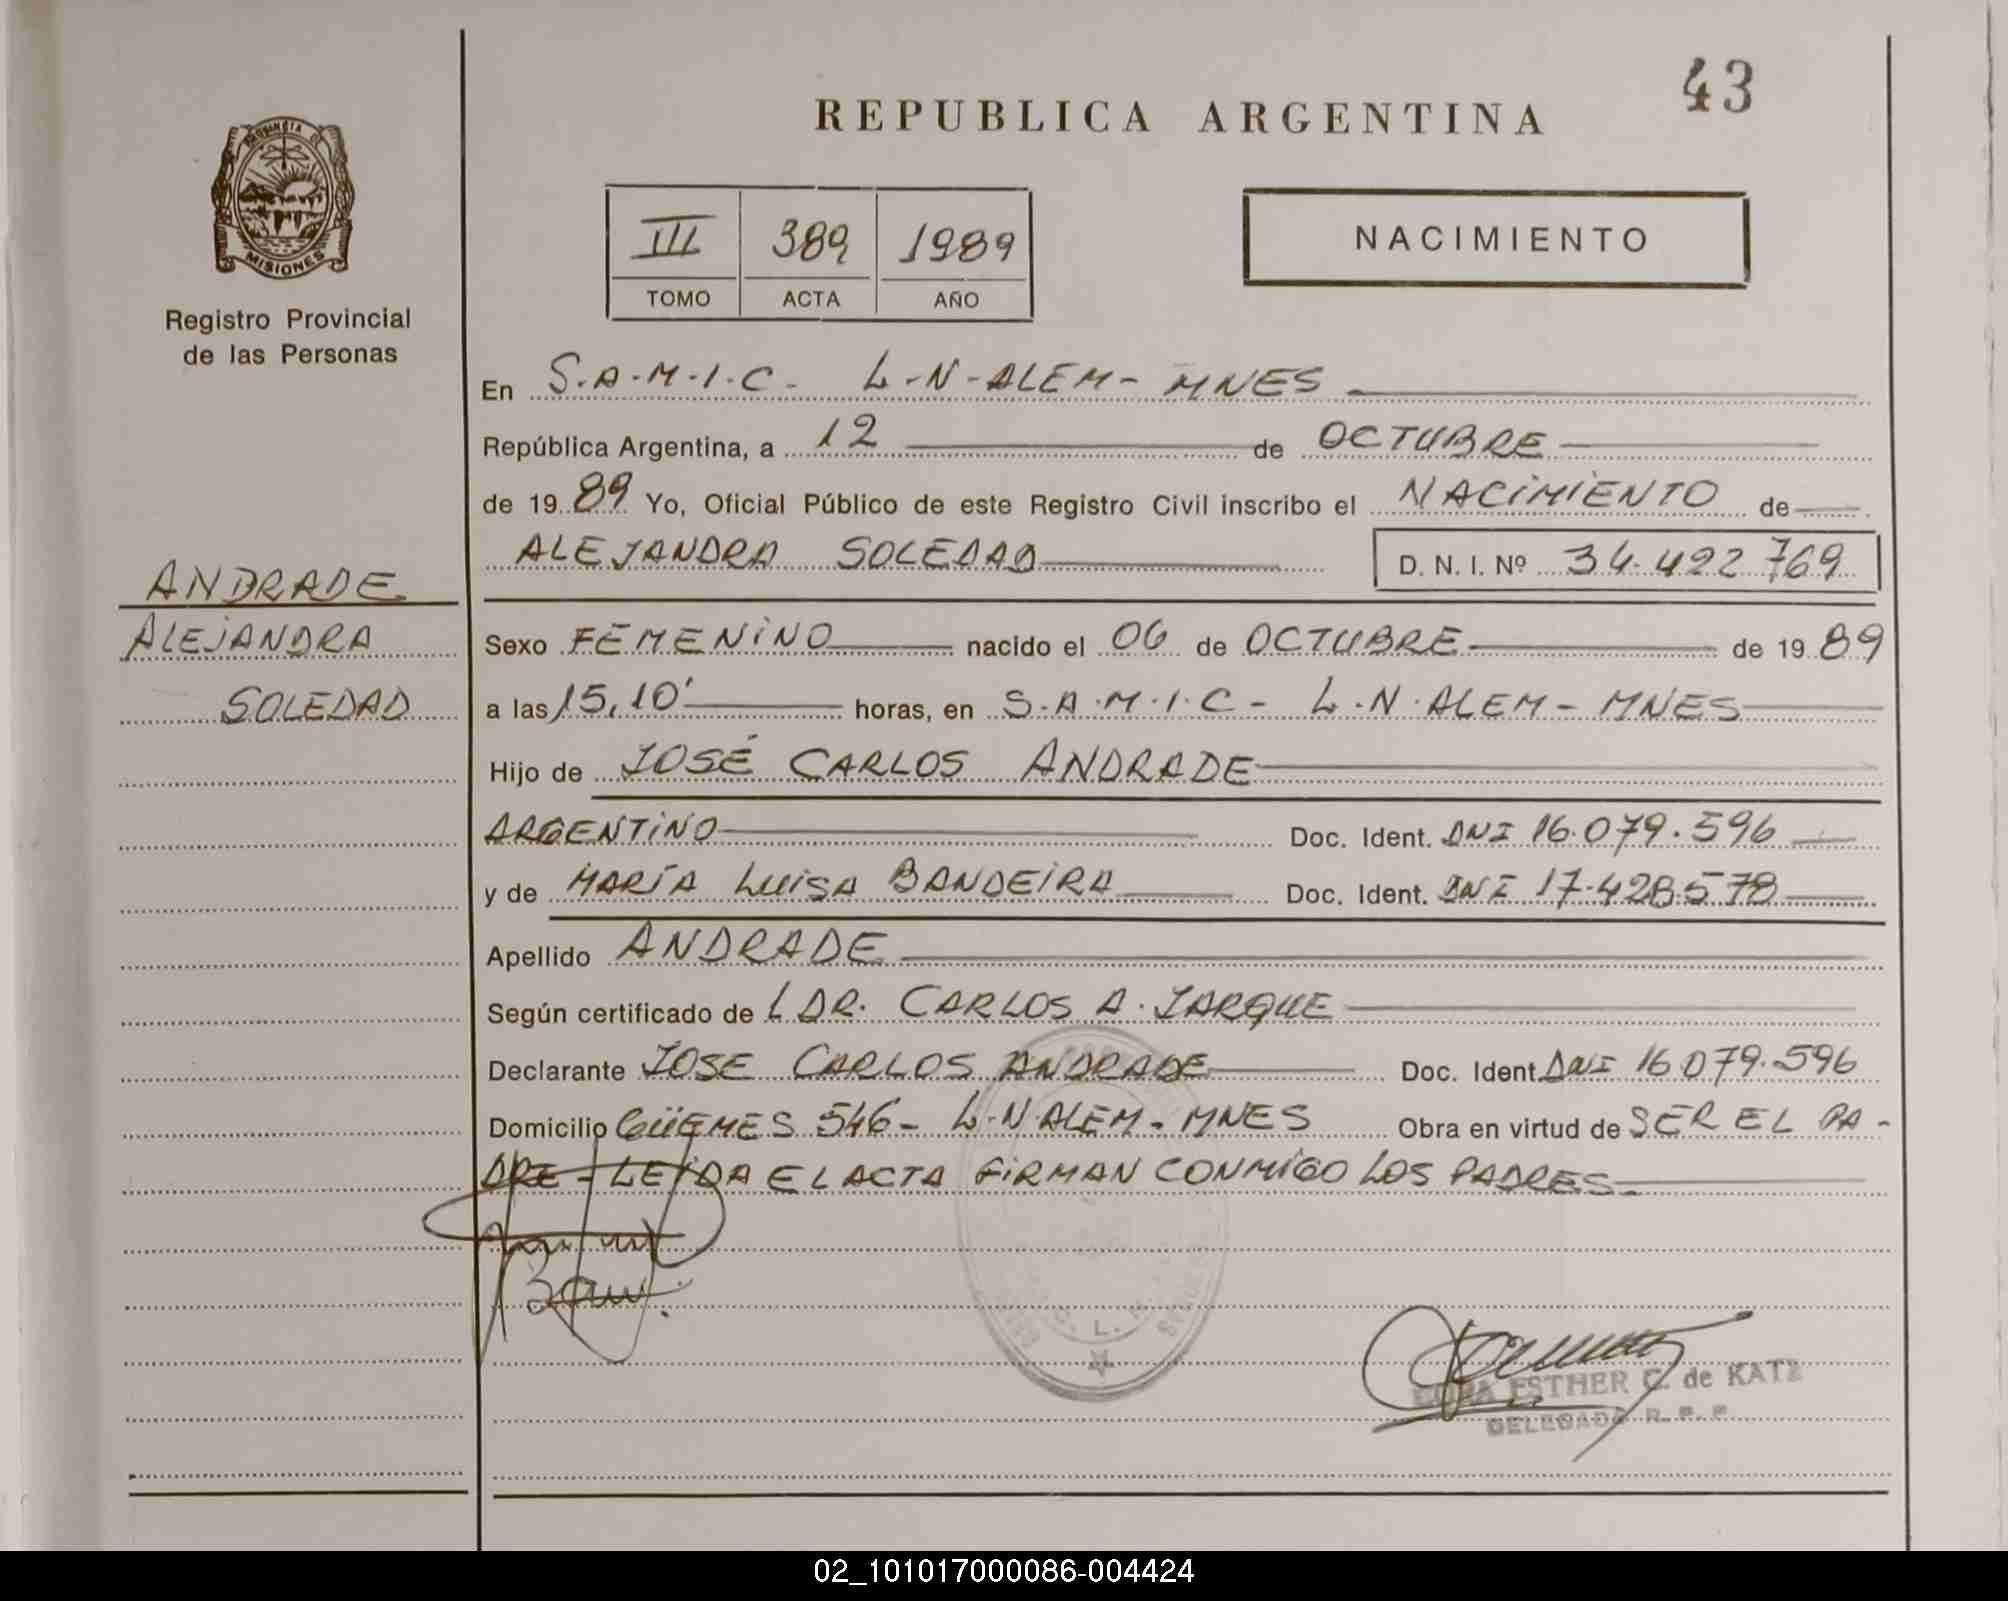 43
REPUBLICA ARGENTINA
PROVINCIA DE
MISIONES
Registro Provincial
de las Personas
III 389 1989
TOMO ACTA AÑO
NACIMIENTO
En S.A.M.I.C. L.N-ALEM- MNES
República Argentina, a 12 de OCTUBRE
de 1989 Yo, Oficial Público de este Registro Civil inscribo el NACIMIENTO de
ALEJANDRA SOLEDAD D. N. I. Nº 34.492 769
ANDRADE
ALEJANDRA
SOLEDAD
Sexo FEMENINO nacido el 06 de OCTUBRE de 1989
a las 15,10' horas, en S.A.M.I.C- L.N.ALEM- MNES
Hijo de JOSÉ CARLOS ANDRADE
ARGENTINO Doc. Ident. DNI 16.079.596
y de MARÍA LUISA BANDEIRA Doc. Ident. DNI 17.428.578
Apellido ANDRADE
Según certificado de L DR. CARLOS A. JARQUE
Declarante JOSE CARLOS ANDRADE Doc. Ident. DNI 16.079.596
Domicilio GÜEMES 546- L.N.ALEM- MNES Obra en virtud de SER EL PA-
DRE- LEIDA EL ACTA FIRMAN CONMIGO LOS PADRES-
ESTHER C. de KATZ
DELEGADO R. P. P.
02_101017000086-004424